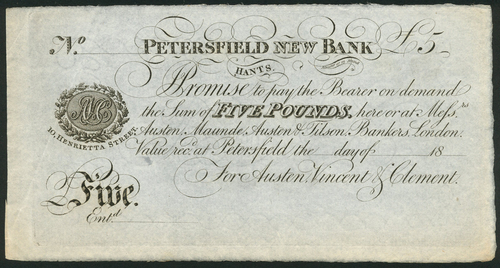 No. PETERSFIELD NEW BANK £5
HANTS.
I Promise to pay the Bearer on demand
the Sum of FIVE POUNDS, here or at Messrs.
Austen, Maunde, Austen & Tilson, Bankers, London.
Value recd. at Petersfield the day of 18
For Austen, Vincent & Clement.
10, HENRIETTA STREET.
Five.
Entd.